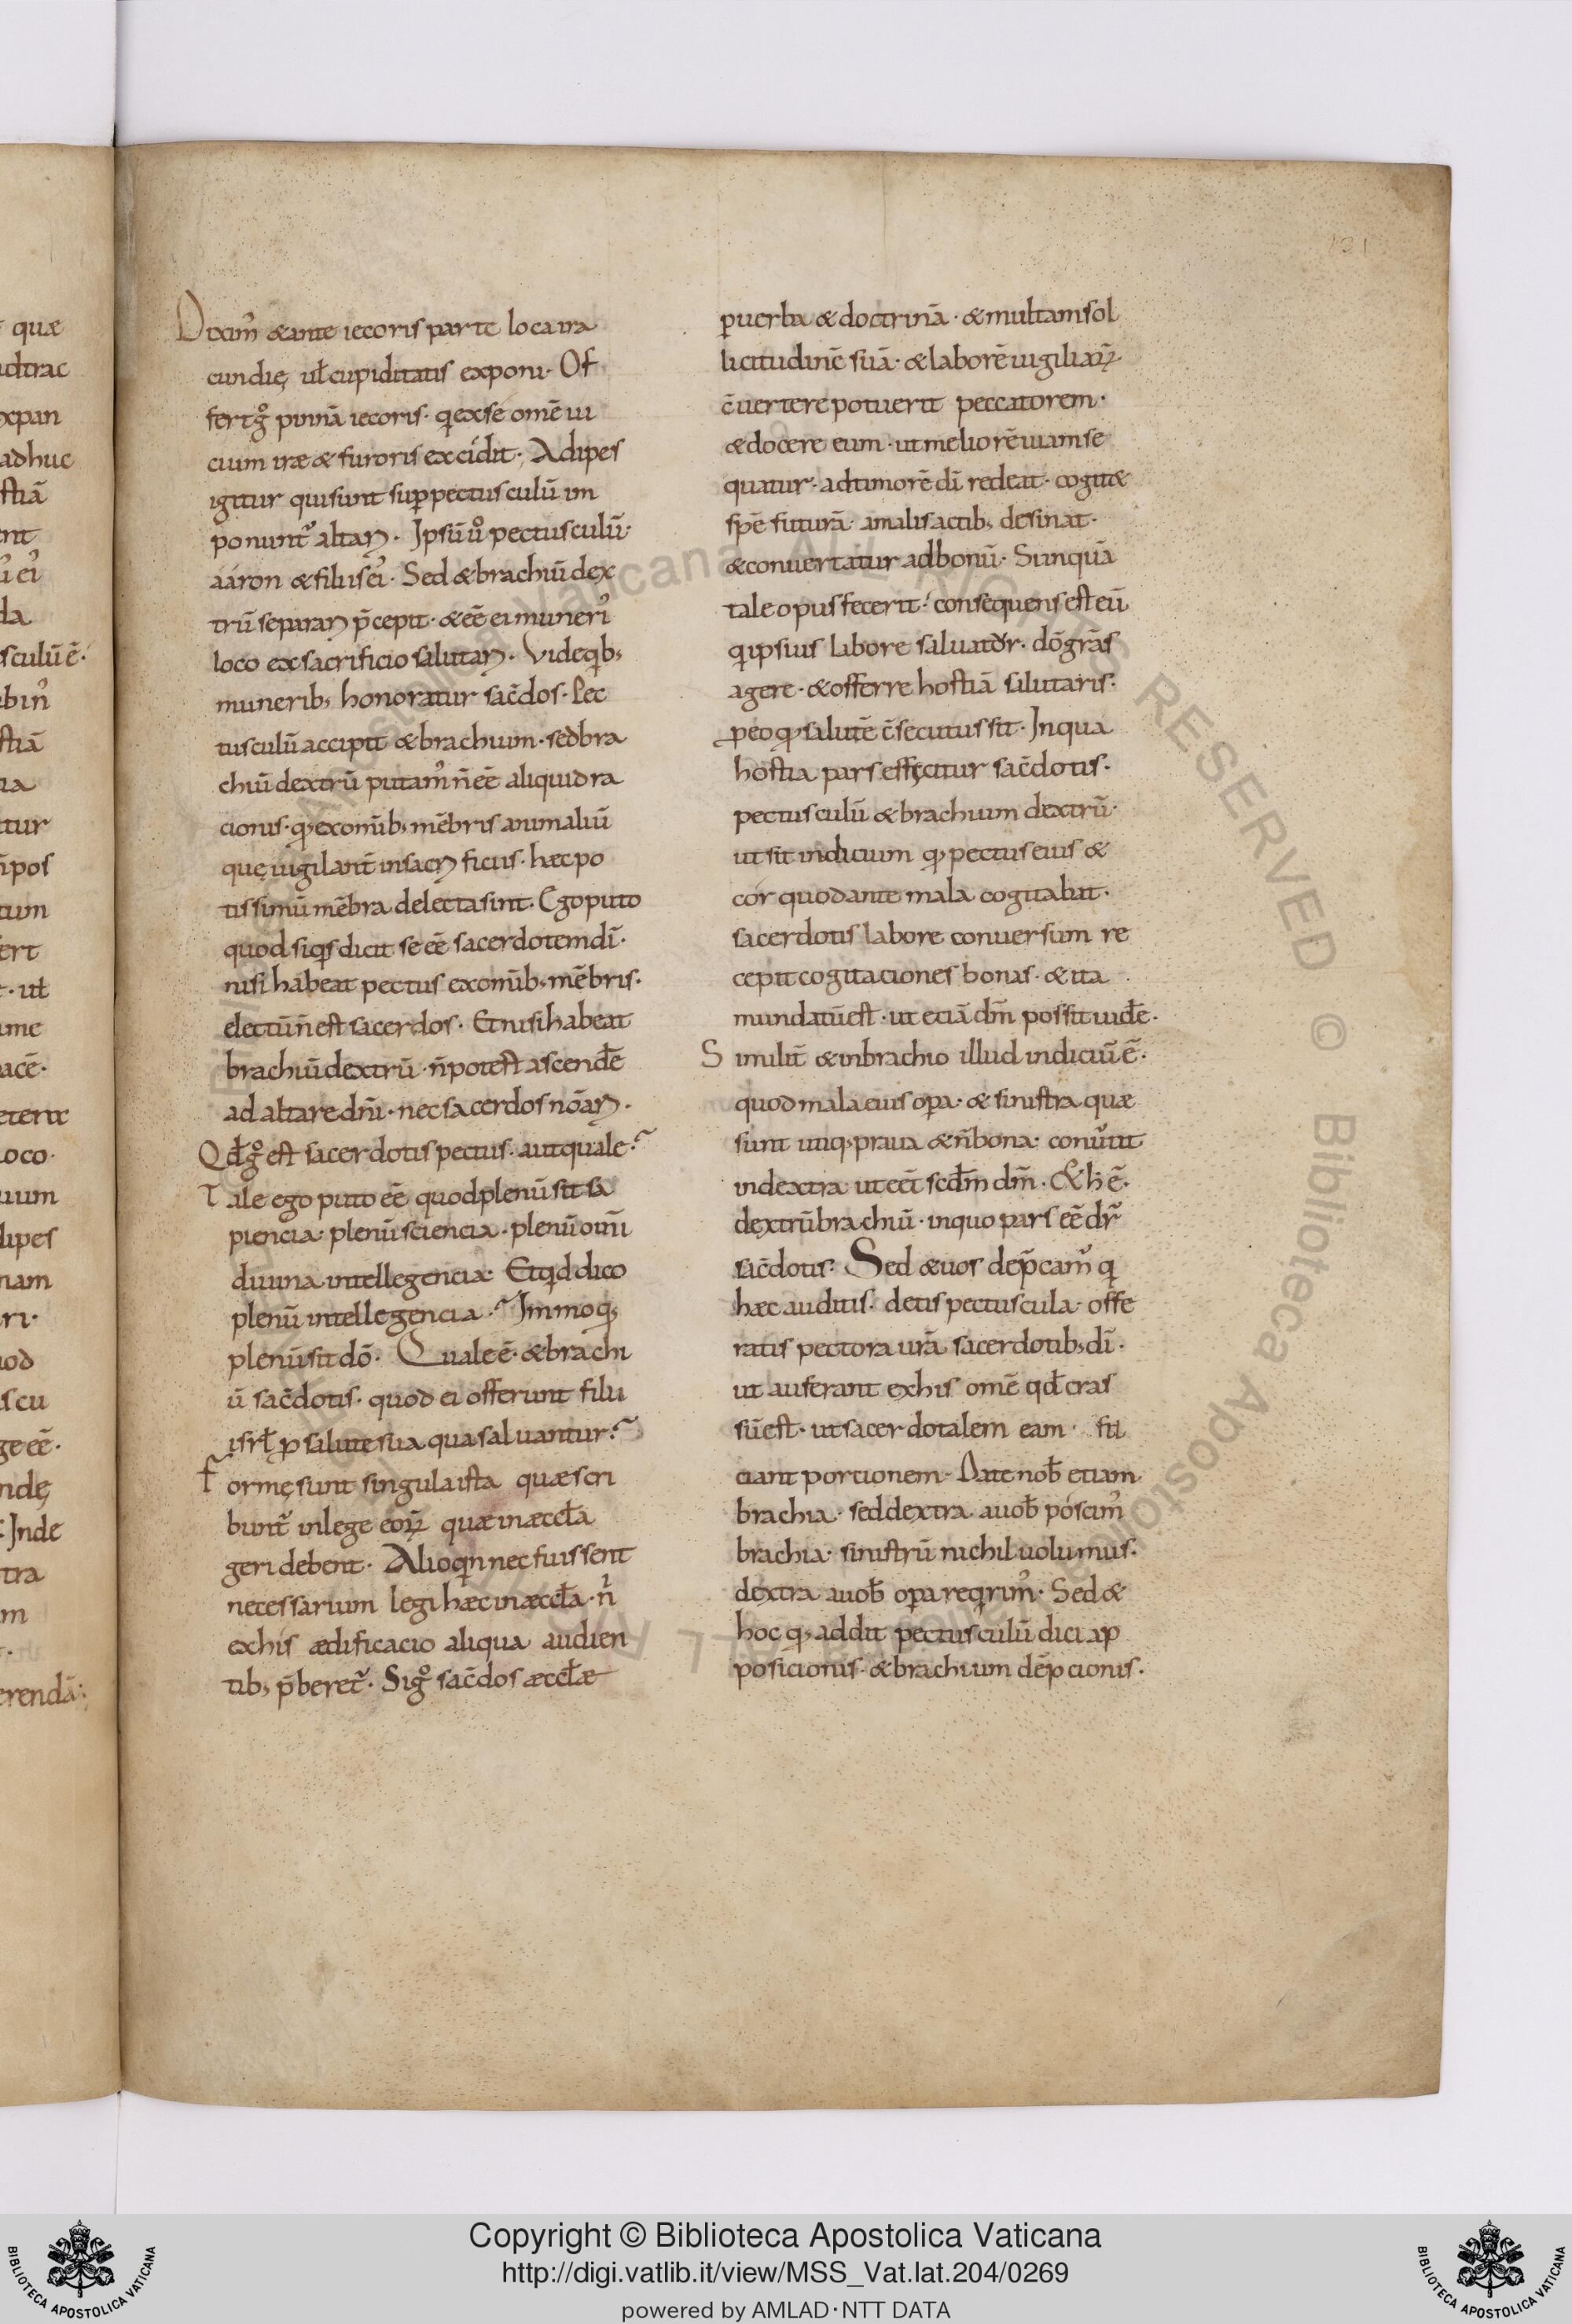 131
Diximꝰ & ante iecoris parte loca ira
cundię ul̄ cupiditatis exponi· Of
fert gͦ pinnā iecoris· q ex se omē ui
cium iræ & furoris excidit· Adipes
igitur qui sunt sup pectusculū im
ponunt᷑ altaꝝ· Ipsū uͦ pectusculū·
aáron & filiis eiꝰ· Sed & brachiū dex
trū separaꝝ p̄cepit· & eē ei munerꝭ
loco ex sacrificio salutaꝝ· Vide qib;
munerib; honoratur sac̄dos· Pec
tusculū accipit & brachium· sed bra
chiū dextrū putamꝰ n̄ eē aliquid ra
cionis· q; ex omib; mēbris animaliū
quę iugilant̄ in sacꝝficiis· hæc po
tissimū mēbra delecta sint· Ego puto
quod siqis dicit se eē sacerdotem dī·
nisi habeat pectus ex omīb; mēbris·
electū n̄ est sacerdos· Et nisi habeat
brachiū dextrū· n̄ potest ascend̄e
ad altare dn̄i· nec sacerdos nōaꝝ·
Qd̄ gͦ est sacerdotis pectus· aut quale?
Tale ego puto eē quod plenū sit sa
piencia· plenū sciencia· plenū omī
diuina intellegencia· Et qd dico
plenū intellegencia? Immo q;
plenū sit dō· Quale ē· & brachi
ū sac̄dotis· quod ei offerunt filii
isrl̄ ꝓ salute sua qua saluantur?
Formę sunt singula ista quæ scri
bunt᷑ in lege eoꝝ quæ in æccl̄a
geri debent· Alioqin nec fuissent
necessarium legi hæc in æccl̄a· nꝭ
ex his ædificacio aliqua audien
tib; p̄beret᷑· Si gͦ sac̄dos æccl̄æ
p uerba & doctrinā· & multam sol
licitudinē suā· & laborē uigiliaꝝ·
c̄uertere potuerit peccatorem·
& docere eum· ut meliorē uiam se
quatur· ad timorē dī redeat· cogit&
spē futurā· a malis actib; desinat·
& conuertatur ad bonū· Si inquā
tale opus fecerit· consequens est eū
q ipsius labore saluatᷣr· dō grās
agere· & offerre hostiā salutaris·
ꝓ eo q; salutē c̄secutus sit· In qua
hostia pars efficitur sac̄dotis·
pectusculū & brachium dextrū·
ut sit indicium q; pectus eius &
cor quod ante mala cogitabat·
sacerdotis labore conuersum re
cepit cogitaciones bonas· & ita
mundatū est· ut etiā dm̄ possit uid̄e·
Similit̄ & in brachio illud indiciū ē·
quod mala eius opa· & sinistra quæ
sunt utiq; praua & n̄ bona· conu᷑tit
in dextra ut eēt scd̄m dm̄· & h̄ ē·
dextrū brachiū· in quo pars eē dr̄
sac̄dotis· Sed & uos dep̄camꝰ q
hæc auditis· detis pectuscula· offe
ratis pectora ur̄a sacerdotib; dī·
ut auferant ex his omē qd̄ cras
sū est· ut sacerdotalem eam fa
ciant portionem· Date nob̄ etiam
brachia· sed dextra a uob̄ poscimꝰ
brachia· sinistrū nichil uolumus·
dextra a uob̄ opa reqirimꝰ· Sed &
hoc q; addit pectusculū dici ap
posicionis· & brachium dēpcionis·
quæ
adhuc
stiā
da
sculū ē·
stiā
tur
ert
· ul̄
acē·
loco·
dipes
nam
Inde
tra
erendā·
Copyright © Biblioteca Apostolica Vaticana
http://digi.vatlib.it/view/MSS_Vat.lat.204/0269
powered by AMLAD·NTT DATA
BIBLIOTECA APOSTOLICA VATICANA
BIBLIOTECA APOSTOLICA VATICANA